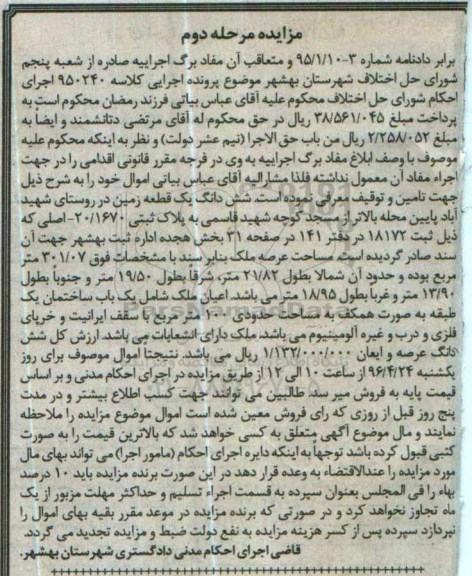 مزایده مرحله دوم
برابر دادنامه شماره ۳-۹۵/۱/۱۰ و متعاقب آن مفاد برگ اجراییه صادره از شعبه پنجم
شورای حل اختلاف شهرستان بهشهر موضوع پرونده اجرایی کلاسه ۹۵۰۲۴۰ اجرای
احکام شورای حل اختلاف محکوم علیه آقای عباس بیاتی فرزند رمضان محکوم است به
پرداخت مبلغ ۳۸/۵۶۱/۰۴۵ ریال در حق محکوم له آقای مرتضی دتانشمند و ایضا به
مبلغ ۲/۲۵۸/۰۵۲ ریال من باب حق الاجرا (نیم عشر دولت) و نظر به اینکه محکوم علیه
موصوف با وصف ابلاغ مفاد برگ اجراییه به وی در فرجه مقرر قانونی اقدامی را در جهت
اجراء مفاد آن معمول نداشته فلذا مشارالیه آقای عباس بیاتی اموال خود را به شرح ذیل
جهت تامین و توقیف معرفی نموده است. شش دانگ یک قطعه زمین در روستای شهید
آباد پایین محله بالاتر از مسجد کوچه شهید قاسمی به پلاک ثبتی ۲۰/۱۶۷۰- اصلی که
ذیل ثبت ۱۸۱۷۲ در دفتر ۱۴۱ در صفحه ۳۱ بخش هجده اداره ثبت بهشهر جهت آن
سند صادر گردیده است. مساحت عرصه ملک بنابر سند با مشخصات فوق ۳۰۱/۰۷ متر
مربع بوده و حدود آن شمالا بطول ۲۱/۸۲ متر، شرقا بطول ۱۹/۵۰ متر و جنوبا بطول
۱۳/۹۰ متر و غربا بطول ۱۸/۹۵ متر می باشد. اعیان ملک شامل یک باب ساختمان یک
طبقه به صورت همکف به مساحت حدودی ۱۰۰ مترمربع با سقف ایرانیت و خرپای
فلزی و درب و غیره آلومینیوم می باشد. ملک دارای انشعابات می باشد. ارزش کل شش
دانگ عرصه و ایعان ۱/۱۳۲/۰۰۰/۰۰۰ ریال می باشد. نتیجتا اموال موصوف برای روز
یکشنبه ۹۶/۴/۲۴ از ساعت ۱۰ الی ۱۲ از طریق مزایده در اجرای احکام مدنی و بر اساس
قیمت پایه به فروش میر سد. طالبین می توانند جهت کسب اطلاع بیشتر و در مدت
پنج روز قبل از روزی که رای فروش معین شده است اموال موضوع مزایده را ملاحظه
نمایند و مال موضوع آگهی متعلق به کسی خواهد شد که بالاترین قیمت را به صورت
کتبی قبول کرده باشد توجها به اینکه دایره اجرای احکام (مامور اجرا) می تواند بهای مال
مورد مزایده را عندالاقتضاء به وعده قرار دهد در این صورت برنده مزایده باید ۱۰ درصد
بهاء را فی المجلس بعنوان سپرده به قسمت اجراء تسلیم و حداکثر مهلت مزبور از یک
ماه تجاوز نخواهد کرد و در صورتی که برنده مزایده در موعد مقرر بقیه بهای اموال را
نپردازد سپرده پس از کسر هزینه مزایده به نفع دولت ضبط و مزایده تجدید می گردد.
قاضی اجرای احکام مدنی دادگستری شهرستان بهشهر.